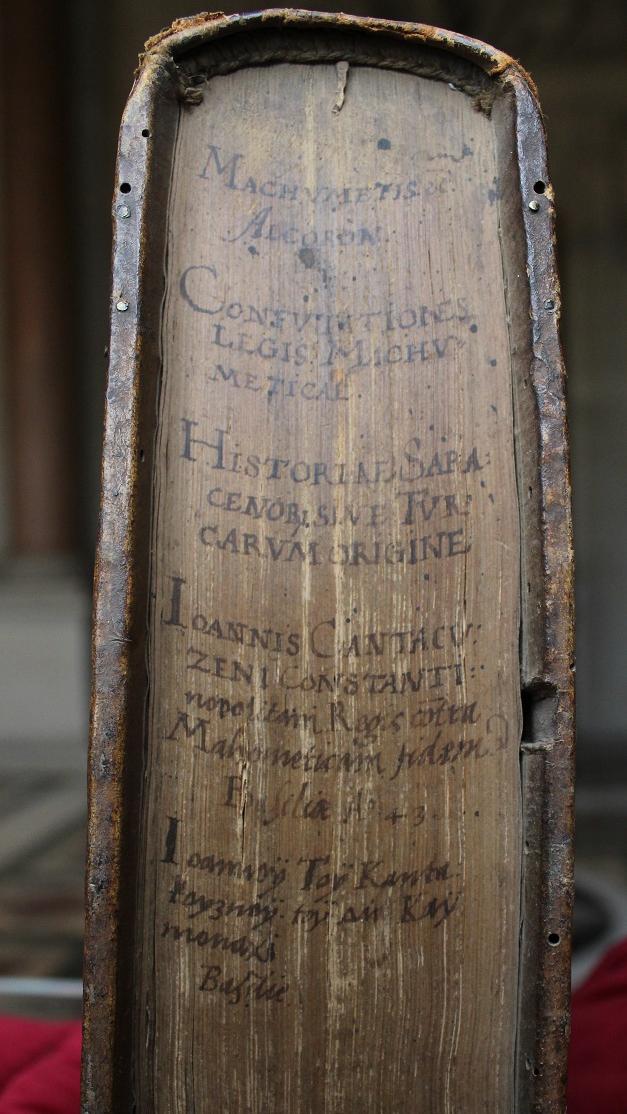 MACHVMETIS
ALCORON.
CONFVTATIONES
LEGIS MACHV
METICAE.
HISTORIAE SARA:
CENOR. SIVE TVR:
CARVM ORIGINE
IOANNIS CANTACV:
ZENI CONSTANTI::
nopolitani Regis cotra
Mahometicam fidem
Basileæ
Ioannoÿ Toÿ Kanta:
Kaÿ
monaxi
Basilie